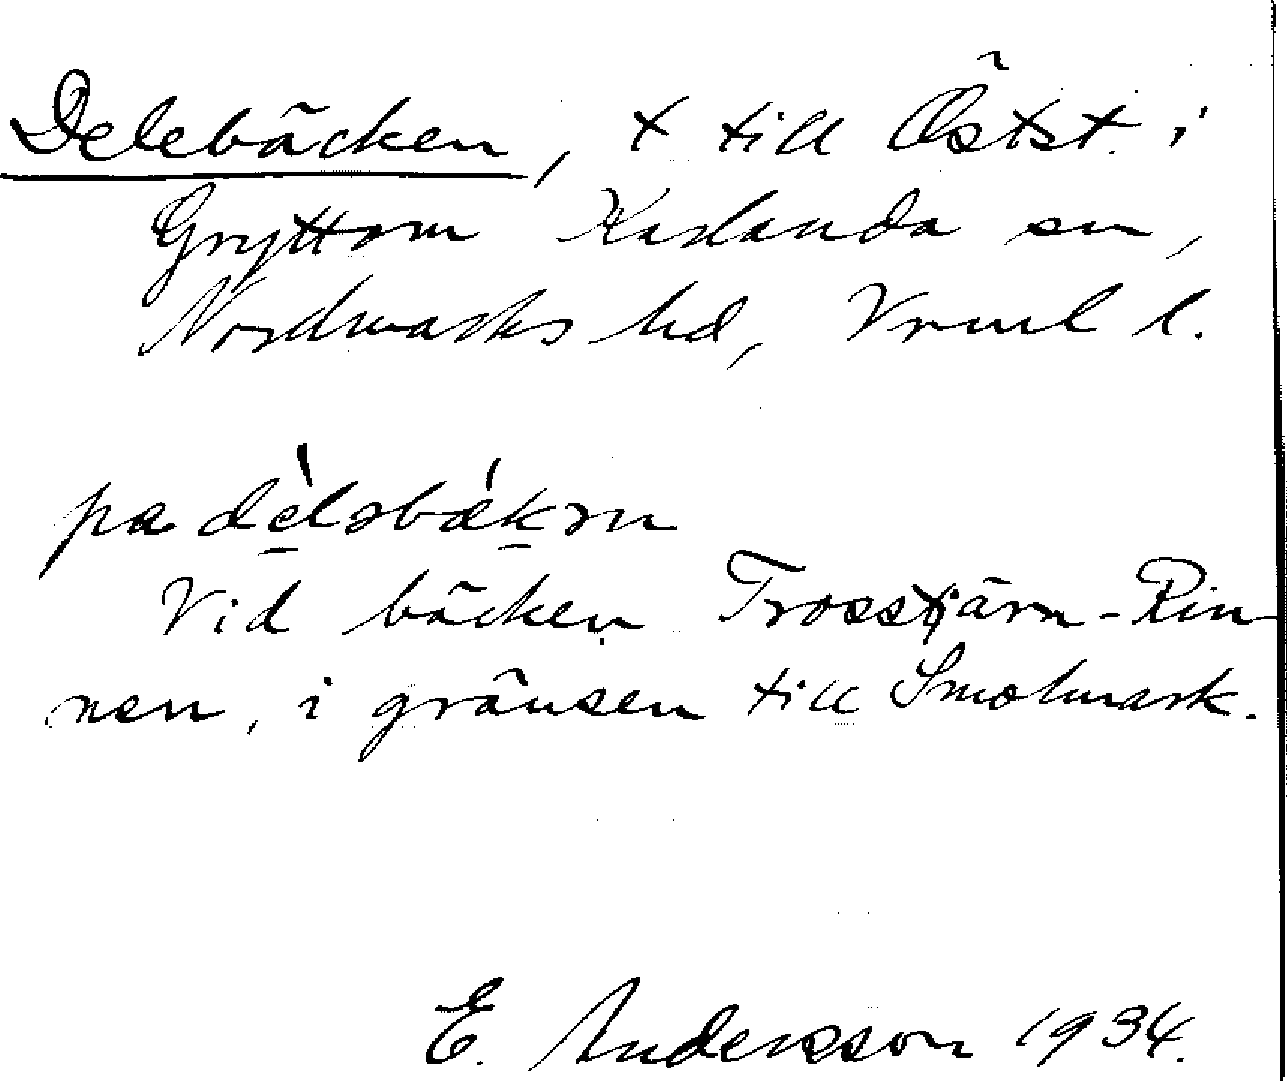 Delebäcken, t till Östst. i
Gryttom Karlanda sn,
Nordmarks hd, Vrml l.
pa dèlsbǽkṃn
Vid bäcken Trosstjärn-Rin-
nen, i gränsen till Smolmark.
E. Andersson 1934.